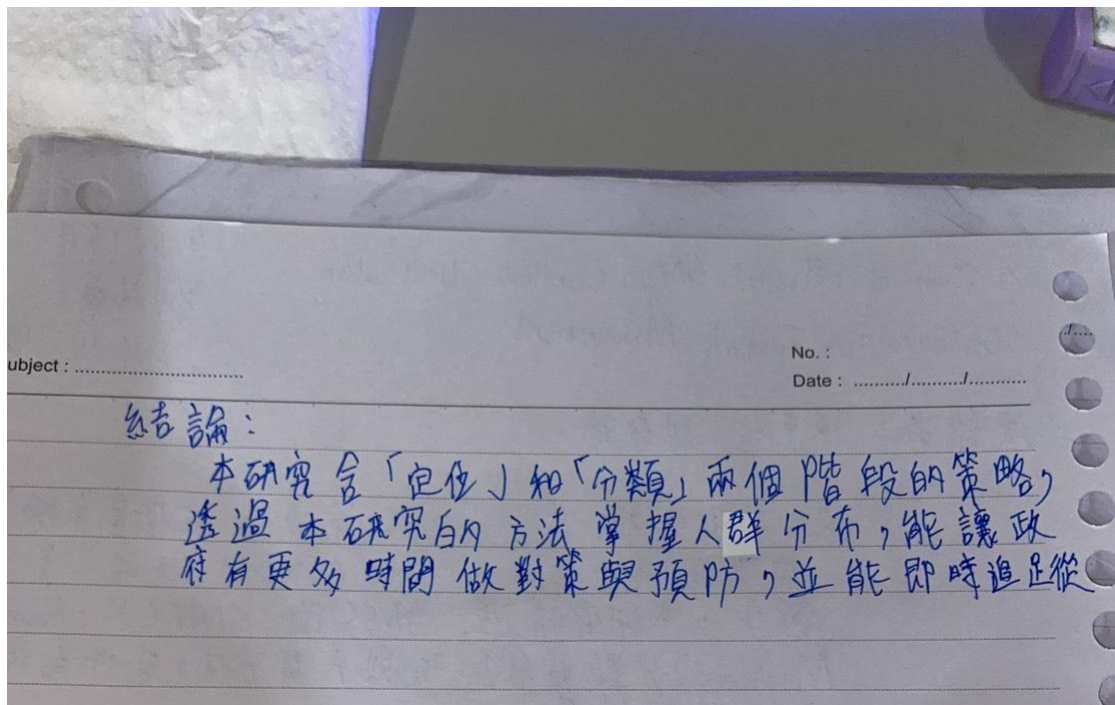 No. :
ubject : ..............................
Date : ........../........../...........
結論:
本研究含「定位」和「分類」兩個階段的策略,
透過本研究的方法掌握人群分布,能讓政
府有更多時間做對策與預防,並能即時追蹤